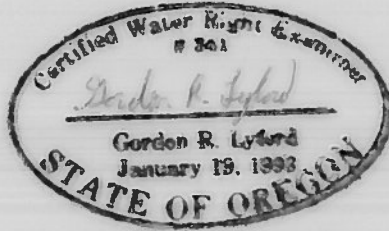 Certified Water Right Examiner
# 341
Gordon R. Lyford
Gordon R. Lyford
January 19, 1993
STATE OF OREGON